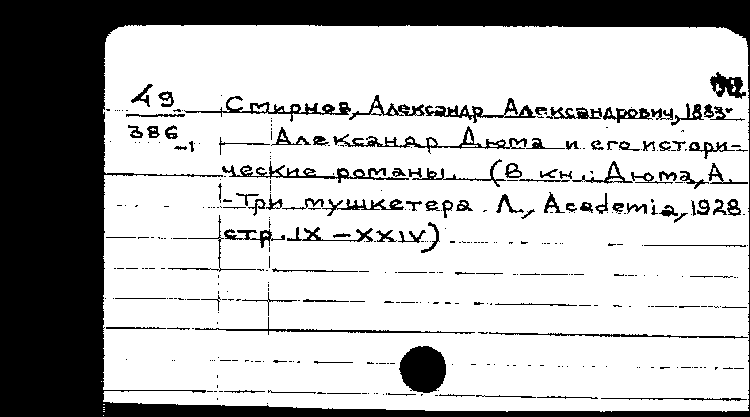 49
386-1
Смирнов, Александр Александрович, 1883-
Александр Дюма и его истори-
ческие романы. (В кн.: Дюма, А.
-Три мушкетера Л., Academia, 1928
стр. IX - XXIV)